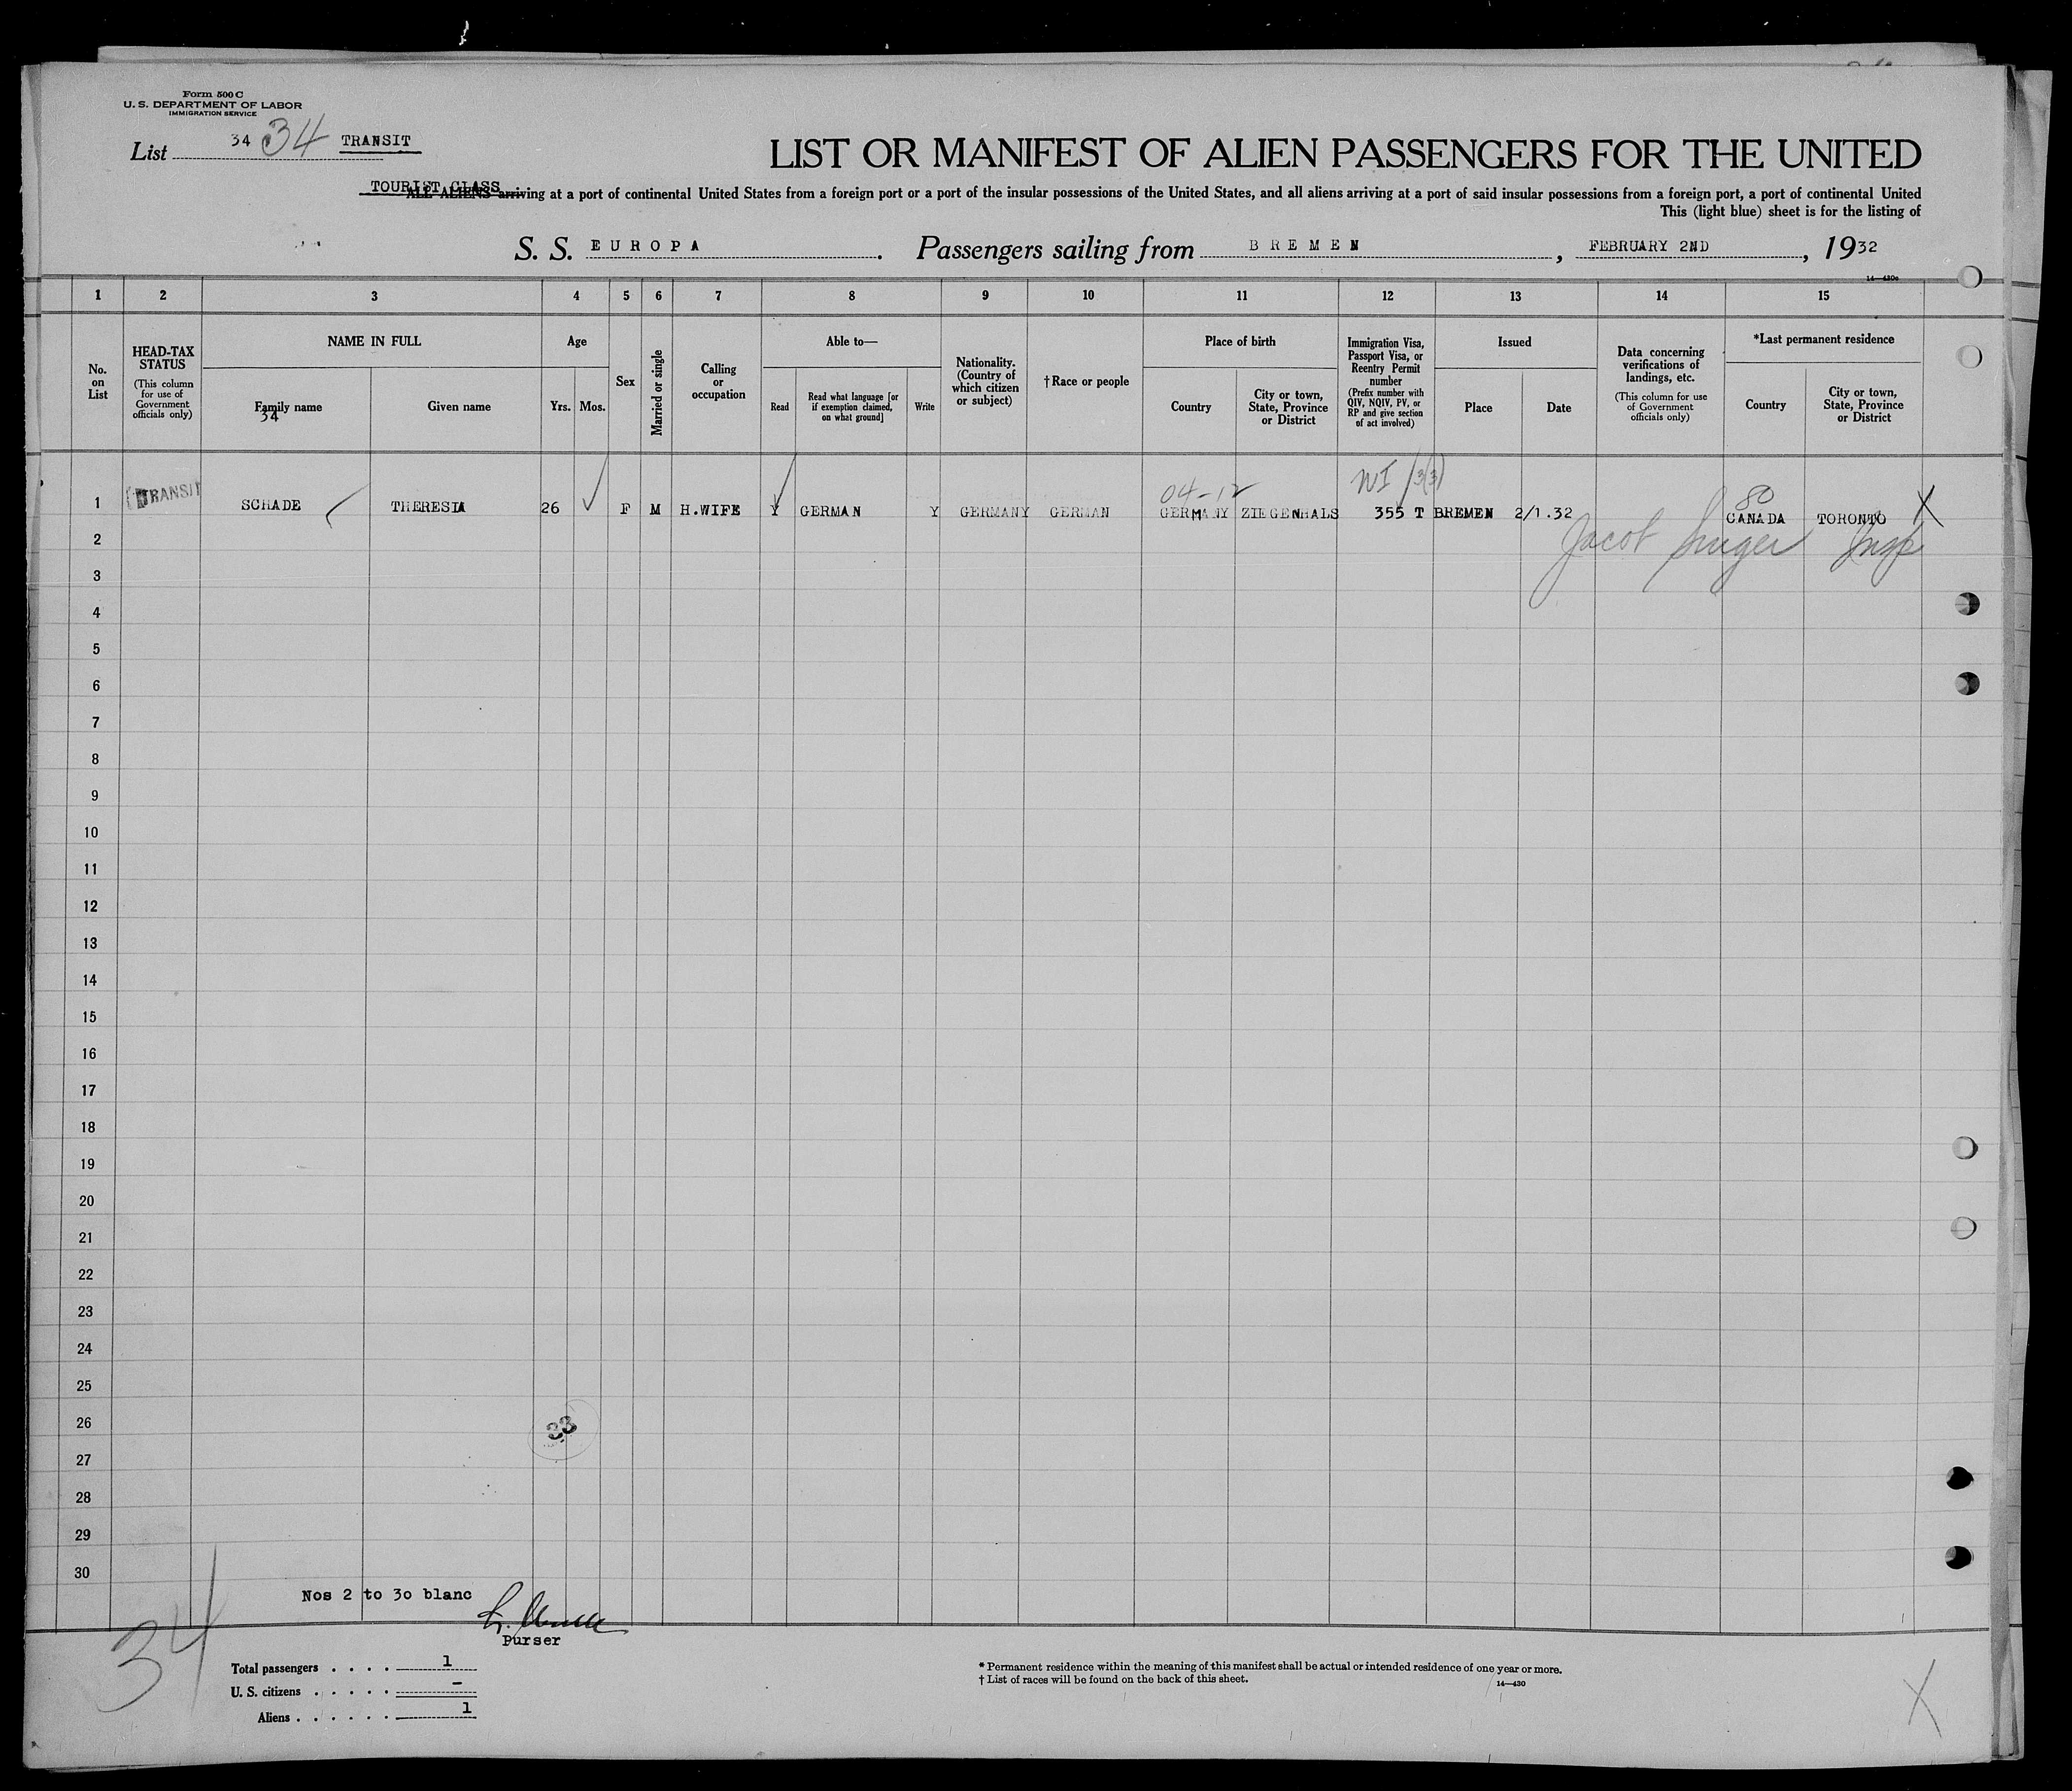 Form 500 C
U. S. DEPARTMENT OF LABOR
IMMIGRATION SERVICE
List 34 34 TRANSIT
LIST OR MANIFEST OF ALIEN PASSENGERS FOR THE UNITED
TOURIST CLASS
ALL ALIENS arriving at a port of continental United States from a foreign port or a port of the insular possessions of the United States, and all aliens arriving at a port of said insular possessions from a foreign port, a port of continental United
This (light blue) sheet is for the listing of
S. S. EUROPA. Passengers sailing from BREMEN, FEBRUARY 2ND, 1932
14—430c
1 2 3 4 5 6 7 8 9 10 11 12 13 14 15
No. on List
HEAD-TAX STATUS
(This column for use of Government officials only)
NAME IN FULL
Family name
34
Given name
Age
Yrs. Mos.
Sex
Married or single
Calling or occupation
Able to—
Read
Read what language [or if exemption claimed, on what ground]
Write
Nationality. (Country of which citizen or subject)
†Race or people
Place of birth
Country
City or town, State, Province or District
Immigration Visa, Passport Visa, or Reentry Permit number
(Prefix number with QIV, NQIV, PV, or RP and give section of act involved)
Issued
Place
Date
Data concerning verifications of landings, etc.
(This column for use of Government officials only)
*Last permanent residence
Country
City or town, State, Province or District
04-12 WI 3(3) 80
1 TRANSIT SCHADE THERESIA 26 F M H.WIFE Y GERMAN Y GERMANY GERMAN GERMANY ZIEGENHALS 355 T BREMEN 2/1.32 CANADA TORONTO X
2 Jacob Insp
3
4
5
6
7
8
9
10
11
12
13
14
15
16
17
18
19
20
21
22
23
24
25
26
33
27
28
29
30
Nos 2 to 30 blanc
Purser
34
Total passengers . . . . 1
U. S. citizens . . . . . –
Aliens . . . . . . 1
* Permanent residence within the meaning of this manifest shall be actual or intended residence of one year or more.
† List of races will be found on the back of this sheet.
14—430
X